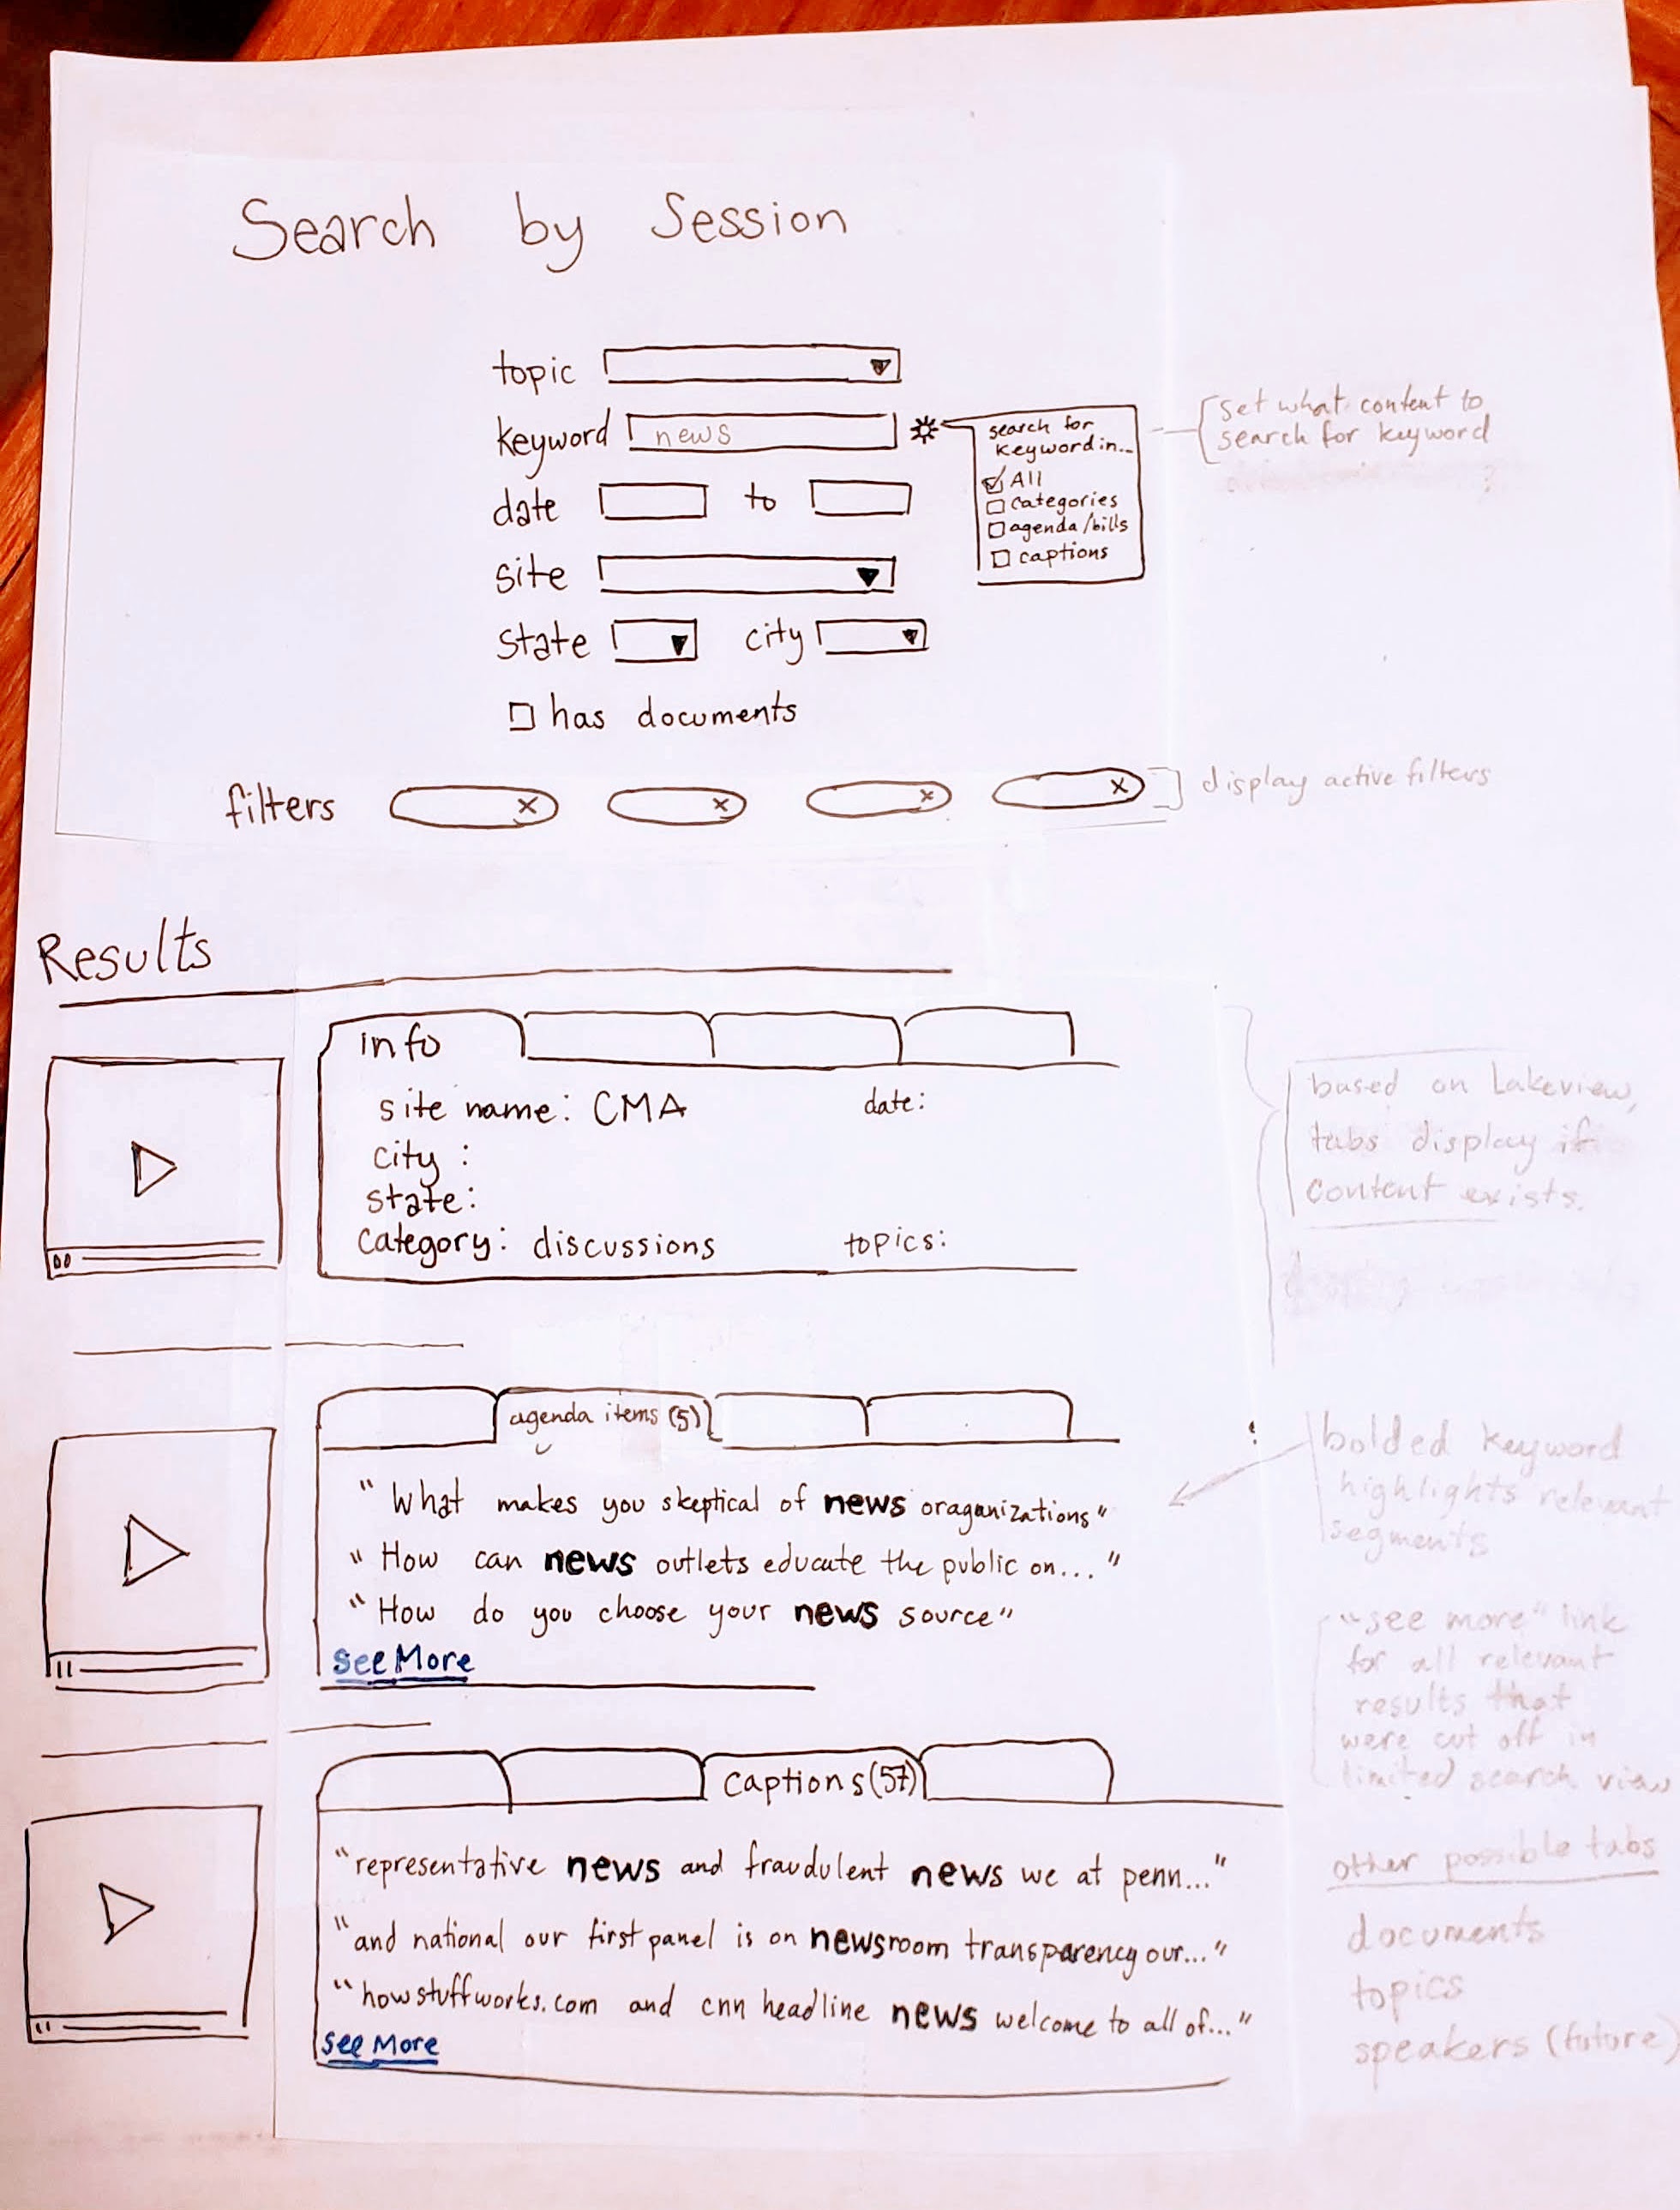 Search by Session
topic
keyword news
search for
keyword in...
All
categories
agenda/bills
captions
set what content to
search for keyword
date to
site
state city
has documents
filters x x x x
display active filters
Results
info
site name: CMA date:
city :
state:
category: discussions topics:
based on Lakeview,
tabs display if
content exists.
agenda items (5)
"What makes you skeptical of news oraganizations"
"How can news outlets educate the public on..."
"How do you choose your news source"
see More
bolded keyword
highlights relevant
segments
"see more" link
for all relevant
results that
were cut off in
limited search view
captions (57)
"representative news and fraudulent news we at penn..."
"and national our first panel is on newsroom transparency our..."
"howstuffworks.com and cnn headline news welcome to all of..."
see More
other possible tabs
documents
topics
speakers (future)